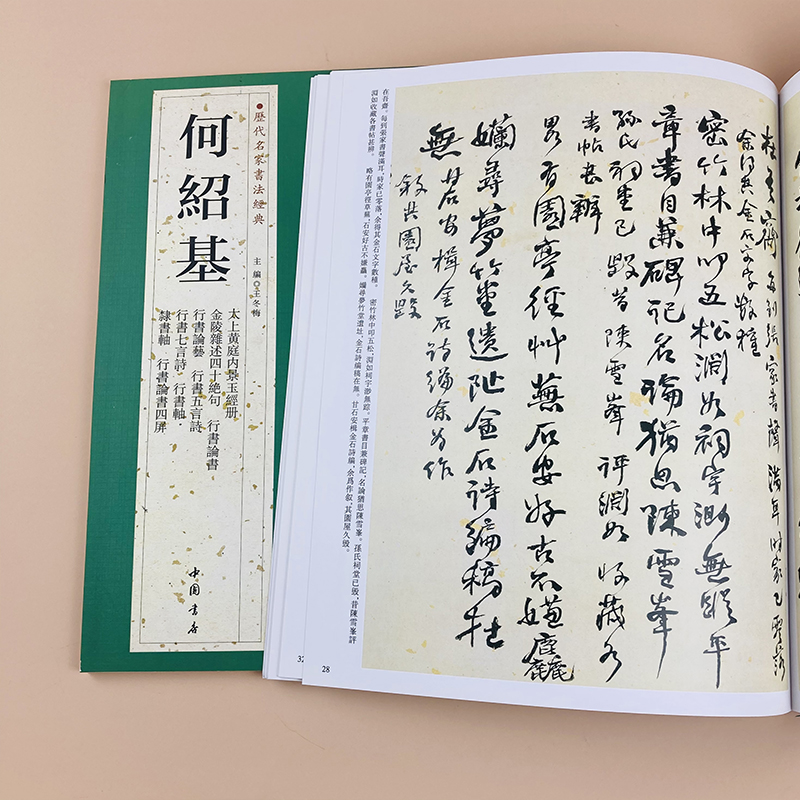 歷代名家書法經典
何紹基
主編◎王冬梅
太上黃庭內景玉經册
金陵雜述四十絶句 行書論書
行書論藝 行書五言詩
行書七言詩 行書軸
隸書軸 行書論書四屏
中国書店
在吾齋 每到張家書聲滿耳 時家已零落
余得其金石文字數種
密竹林中叩五松淵如祠宇渺無蹤平
章書目兼碑記名論猶思陳雪峯
孫氏祠堂已毀昔陳雪峯評淵如收藏各
書帖甚辨
略有園亭徑艸蕪石安好古不嫌麤
嬾尋夢竹堂遺阯金石詩編稿在
無 甘石安楫金石詩編余爲作
叙其園屋久毀
在吾齋。每到張家書聲滿耳,時家已零落,余得其金石文字數種。 密竹林中叩五松,淵如祠宇渺無踪。平章書目兼碑記,名論猶思陳雪峯。孫氏祠堂已毀,昔陳雪峯評
淵如收藏各書帖甚辨。 略有園亭徑草蕪,石安好古不嫌麤。嬾尋夢竹堂遺址,金石詩編稿在無。甘石安楫金石詩編,余爲作叙,其園屋久毀。
32
28